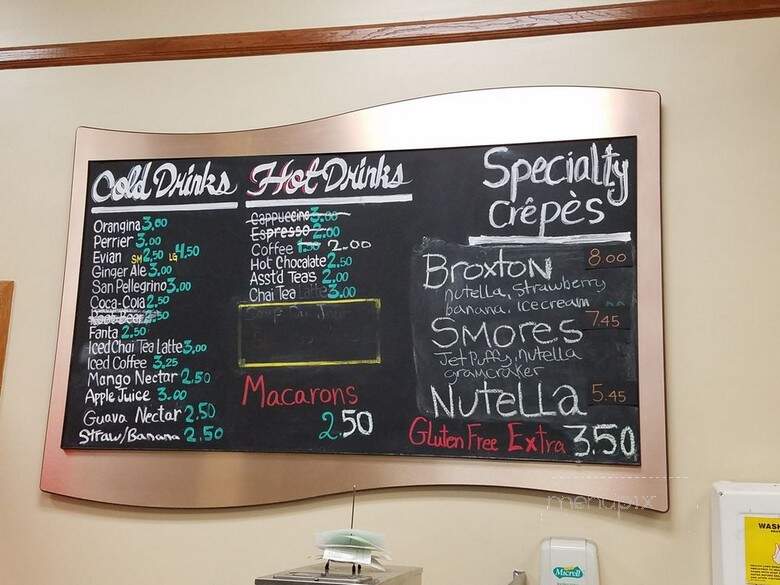 Cold Drinks
Orangina 3.00
Perrier 3.00
Evian SM 2.50 LG 4.50
Ginger Ale 3.00
San Pellegrino 3.00
Coca-Cola 2.50
Root Beer 2.50
Fanta 2.50
Iced Chai Tea Latte 3.00
Iced Coffee 3.25
Mango Nectar 2.50
Apple Juice 3.00
Guava Nectar 2.50
Straw/Banana 2.50
Hot Drinks
Cappuccino 3.00
Espresso 2.00
Coffee 1.50 2.00
Hot Chocolate 2.50
Asstd Teas 2.00
Chai Tea Latte 3.00
Macarons
2.50
Specialty
Crêpès
Broxton 8.00
nutella, strawberry
banana, icecream
Smores 7.45
Jet Puffy, nutella
gramcraker
Nutella 5.45
Gluten Free Extra 3.50
menupix
Micrell
WASH